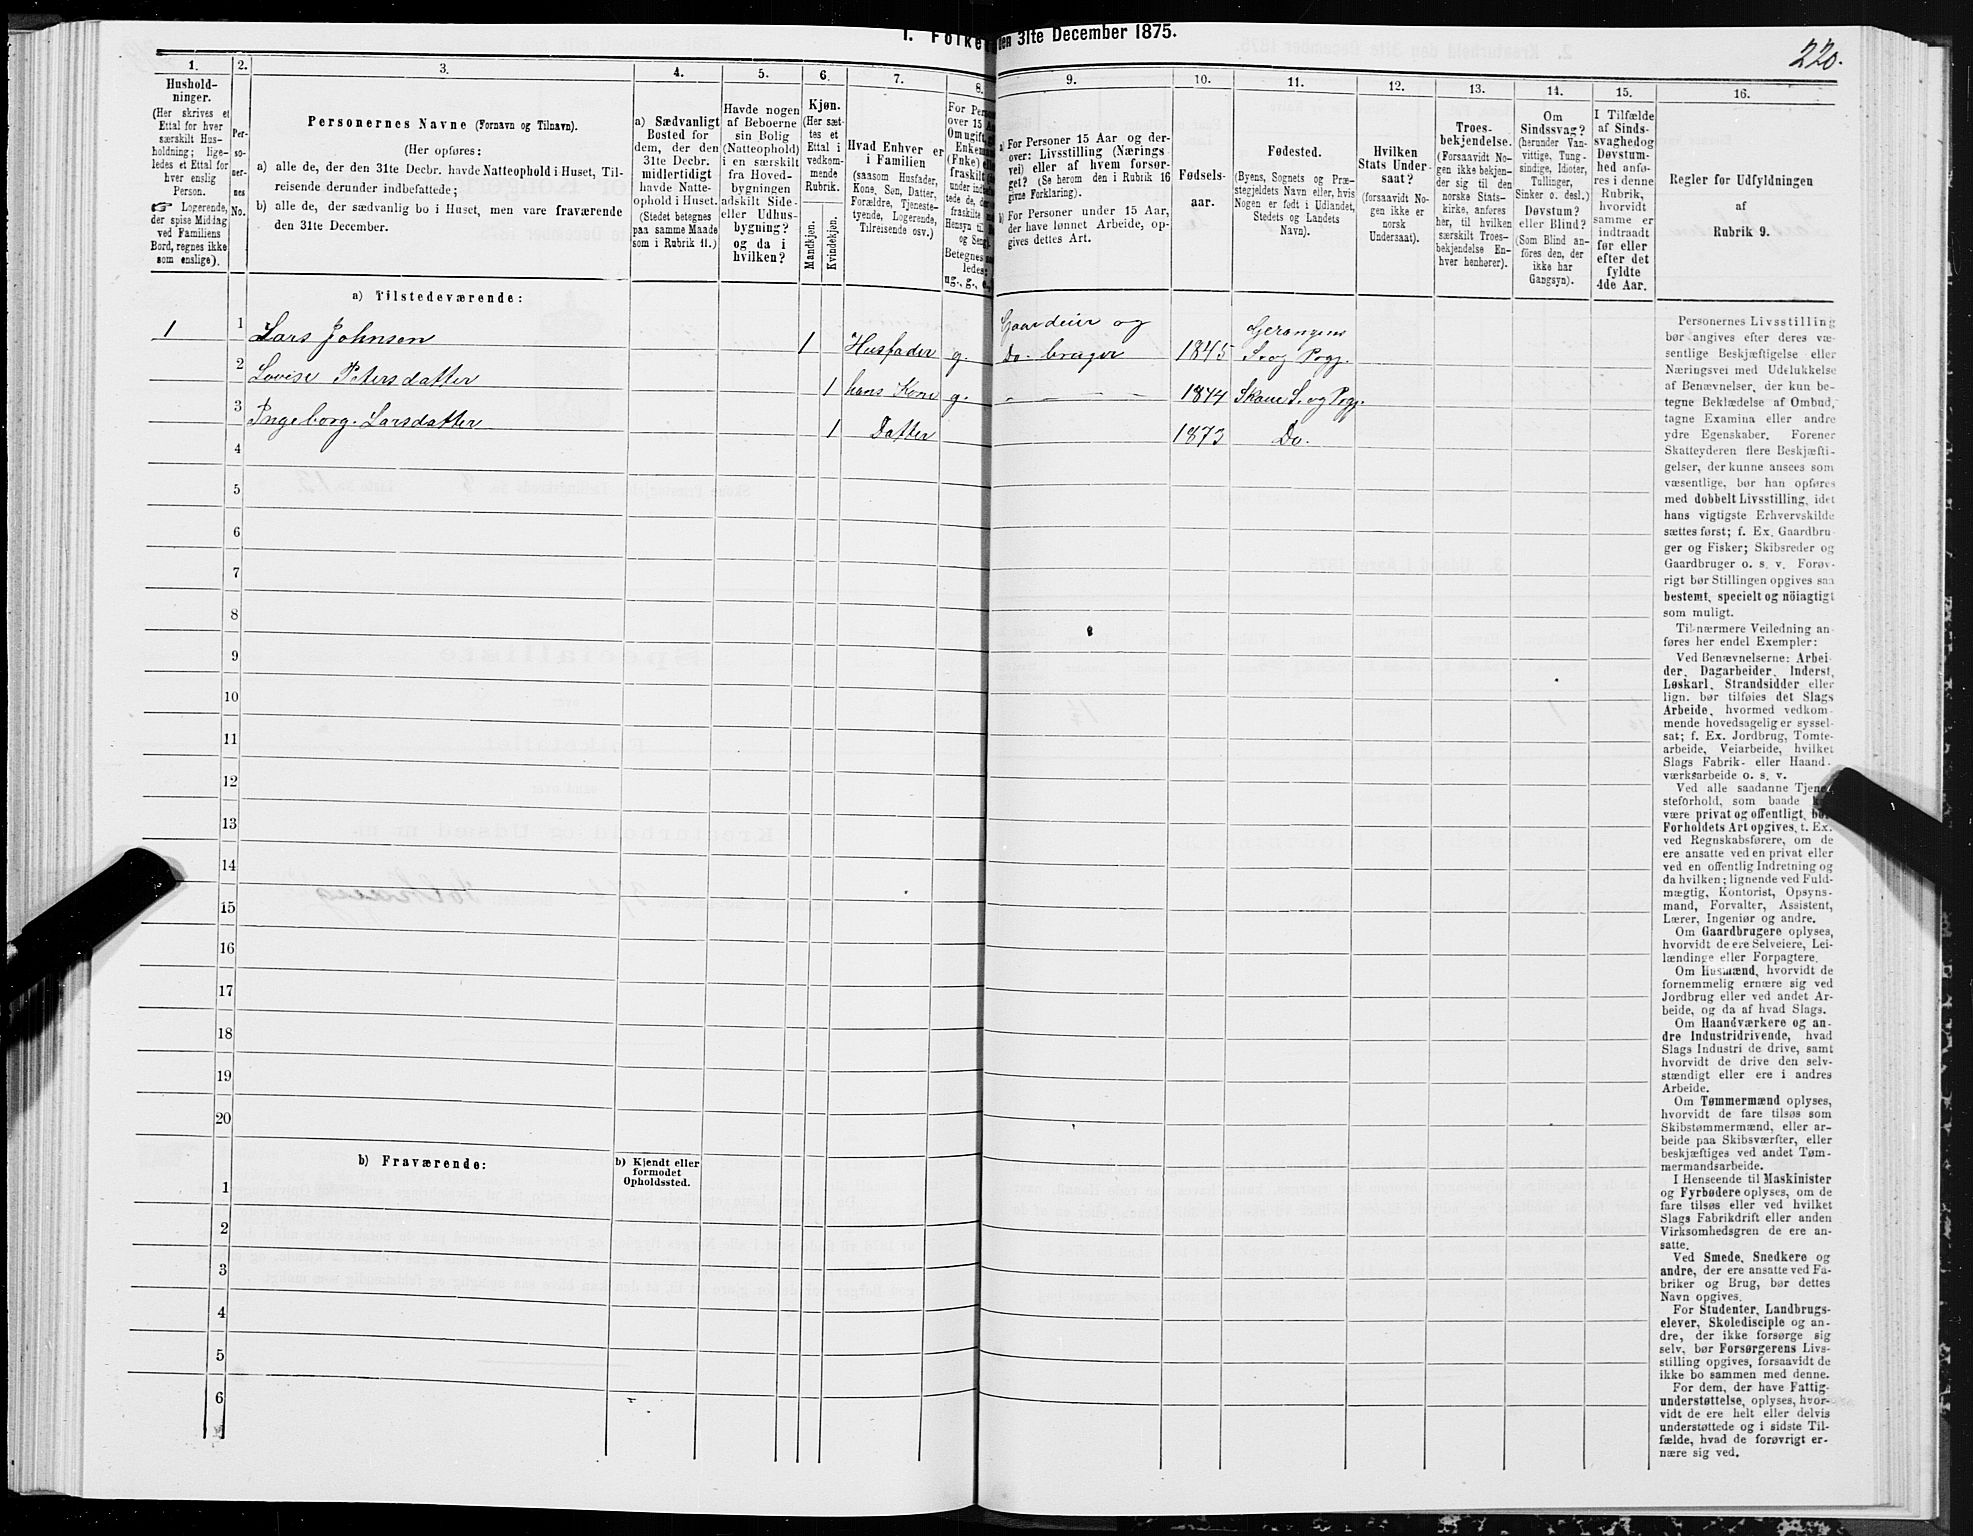 1. Folke den 31te December 1875.
220.
1.
2.
3.
4.
5.
6.
7.
8.
9.
10.
11.
12.
13.
14.
15.
16.
Hushold-
ninger.
(Her skrives et
Ettal for hver
særskilt Hus-
holdning; lige-
ledes et Ettal for
hver enslig
Person.
☞ Logerende,
der spise Middag
ved Familiens
Bord, regnes ikke
som enslige).
Per-
so-
ner-
nes
No.
Personernes Navne (Fornavn og Tilnavn).
(Her opføres:
a) alle de, der den 31te Decbr. havde Natteophold i Huset, Til-
reisende derunder indbefattede;
b) alle de, der sædvanlig bo i Huset, men vare fraværende
den 31te December.
a) Sædvanligt
Bosted for
dem, der den
31te Decbr.
midlertidigt
havde Natte-
ophold i Huset.
(Stedet betegnes
paa samme Maade
som i Rubrik 11.)
Havde nogen
af Beboerne
sin Bolig
(Natteophold)
i en særskilt
fra Hoved-
bygningen
adskilt Side-
eller Udhus-
bygning?
og da i
hvilken?
Kjøn.
(Her sæt-
tes et
Ettal i
vedkom-
mende
Rubrik.
Mandkjøn.
Kvindekjøn.
Hvad Enhver er
i Familien
(saasom Husfader,
Kone, Søn, Datter,
Forældre, Tjeneste-
tyende, Logerende,
Tilreisende osv.)
For Pers
over 15 A
Om ugift, g
Enkema
(Fnke) el
fraskilt
under indbe
tede de, der
fraskilte
Hensyn til
og Seng
Betegnes
ledes:
ug., g., e.,
a) For Personer 15 Aar og der-
over: Livsstilling (Nærings
vei) eller af hvem forsør-
get? (Se herom den i Rubrik 16
givne Forklaring).
b) For Personer under 15 Aar,
der have lønnet Arbeide, op-
gives dettes Art.
Fødsels-
aar.
Fødested.
(Byens, Sognets og Præ-
stegjeldets Navn eller, hvis
Nogen er født i Udlandet,
Stedets og Landets
Navn).
Hvilken
Stats Under-
saat?
(forsaavidt No-
gen ikke er
norsk
Undersaat).
Troes-
bekjendelse.
(Forsaavidt No-
gen ikke bekjen-
der sig til den
norske Stats-
kirke, anføres
her, til hvilken
særskilt Troes-
bekjendelse En-
hver henhører).
Om
Sindssvag?
(herunder Van-
vittige, Tung-
sindige, Idioter,
Tullinger,
Sinker o. desl.)
Døvstum?
eller Blind?
(Som Blind an-
føres den, der
ikke har
Gangsyn).
I Tilfælde
af Sinds-
svaghed og
Døvstum-
hed anfø-
res i denne
Rubrik,
hvorvidt
samme er
indtraadt
før eller
efter det
fyldte
4de Aar.
Regler for Udfyldningen
af
Rubrik 9.
a) Tilstedeværende:
1 1 Lars Johnsen 1 Husfader g. Gaardeier og
Do. bruger 1845 Gerangens
S. og Pogj.
2 Lovise Petersdatter 1 hans Kone g. 1844 Skaue S. og Pogj.
3 Ingeborg Larsdatter 1 Datter 1873 Do.
4
5
6
7
8
9
10
11
12
13
14
15
16
17
18
19
20
b) Fraværende:
b) Kjendt eller
formodet
Opholdssted.
1
2
3
4
5
6
Personernes Livsstilling
bør angives efter deres væ-
sentlige Beskjæftigelse eller
Næringsvei med Udelukkelse
af Benævnelser, der kun be-
tegne Beklædelse af Ombud,
tagne Examina eller andre
ydre Egenskaber. Forener
Skatteyderen flere Beskjæfti-
gelser, der kunne ansees som
væsentlige, bør han opføres
med dobbelt Livsstilling, idet
hans vigtigste Erhvervskilde
sættes først; f. Ex. Gaardbru-
ger og Fisker; Skibsreder og
Gaardbruger o. s. v. Forøv-
rigt bør Stillingen opgives saa
bestemt, specielt og nöiagtigt
som muligt.
Til nærmere Veiledning an-
føres her endel Exempler:
Ved Benævnelserne: Arbei-
der, Dagarbeider, Inderst,
Løskarl, Strandsidder eller
lign. bør tilføies det Slags
Arbeide, hvormed vedkom-
mende hovedsagelig er syssel-
sat; f. Ex. Jordbrug, Tomte-
arbeide, Veiarbeide, hvilket
Slags Fabrik- eller Haand-
værksarbeide o. s. v.
Ved alle saadanne Tjene-
steforhold, som baade k
være privat og offentligt, bør
Forholdets Art opgives, t. Ex.
ved Regnskabsførere, om de
ere ansatte ved en privat eller
ved en offentlig Indretning og
da hvilken; lignende ved Fuld-
mægtig, Kontorist, Opsyns-
mand, Forvalter, Assistent,
Lærer, Ingeniør og andre.
Om Gaardbrugere oplyses,
hvorvidt de ere Selveiere, Lei-
lændinge eller Forpagtere.
Om Husmænd, hvorvidt de
fornemmelig ernære sig ved
Jordbrug eller ved andet Ar-
beide, og da af hvad Slags.
Om Haandværkere og an-
dre Industridrivende, hvad
Slags Industri de drive, samt
hvorvidt de drive den selv-
stændigt eller ere i andres
Arbeide.
Om Tømmermænd oplyses,
hvorvidt de fare tilsøs som
Skibstømmermænd, eller ar-
beide paa Skibsværfter, eller
beskjæftiges ved andet Tøm-
mermandsarbeide.
I Henseende til Maskinister
og Fyrbødere oplyses, om de
fare tilsøs eller ved hvilket
Slags Fabrikdrift eller anden
Virksomhedsgren de ere an-
satte.
Ved Smede, Snedkere og
andre, der ere ansatte ved Fa-
briker og Brug, bør dettes
Navn opgives.
For Studenter, Landbrugs-
elever, Skoledisciple og an-
dre, der ikke forsørge sig
selv, bør Forsørgerens Livs-
stilling opgives, forsaavidt de
ikke bo sammen med denne.
For dem, der have Fattig-
understøttelse, oplyses, hvor-
vidt de ere helt eller delvis
understøttede og i sidste Til-
fælde, hvad de forøvrigt er-
nære sig ved.